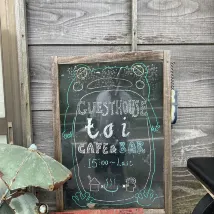 GUESTHOUSE
toi
CAFE&BAR
15:00~Last